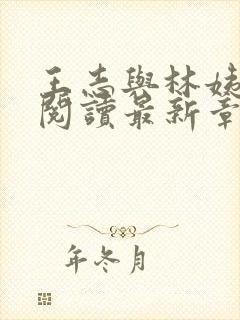 王志與林姨
閱讀最新章
年冬月